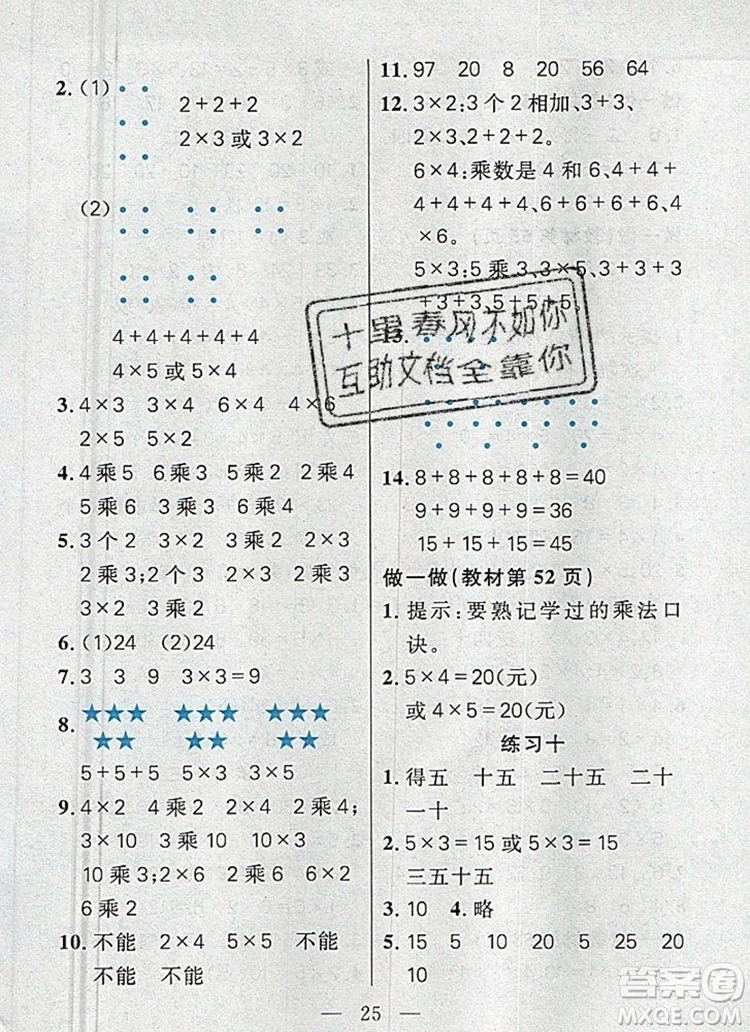 2. (1)
2+2+2
2×3或3×2
(2)
4+4+4+4+4
4×5或5×4
3. 4×3 3×4 6×4 4×6
2×5 5×2
4. 4乘5 6乘3 5乘2 2乘4
5乘6 3乘6 2乘3 5乘3
5. 3个2 2乘3 3乘2 2×3
2乘3;2个3 2×3 3×2
3×2 2乘3 3乘2
6. (1)24 (2)24
7. 3 3 9 3×3=9
8. ★★★ ★★★ ★★★
★★ ★★ ★★
5+5+5 5×3 3×5
9. 4×2 4乘2 2×4 2乘4;
3×10 3乘10 10×3
10乘3;2×6 6×2 2乘6
6乘2
10. 不能 2×4 5×5 不能
不能 不能
11. 97 20 8 20 56 64
12. 3×2:3个2相加、3+3、
3乘2、2+2+2。
6×4:乘数是4和6、4+4+
4+4+4+4、6+6+6+6、4
×6。
5×3:5乘3、3×5、3+3+3
+3+3、5+5+5。
13.
十里春风不如你
互助文档全靠你
14. 8+8+8+8+8=40
9+9+9+9=36
15+15+15=45
做一做(教材第52页)
1. 提示:要熟记学过的乘法口
诀。
2. 5×4=20(元)
或4×5=20(元)
练习十
1. 得五 十五 二十五 二十
一十
2. 5×3=15或5×3=15
三五十五
3. 10 4. 略
5. 15 5 10 20 5 25 20
10
25
答案圈
MXQE.COM